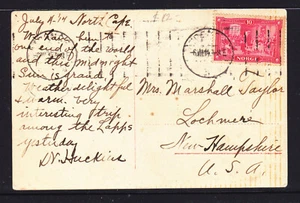 July 4.14 North Cape
him to
our end of the world
and the midnight
sun is grand
Weather delightful
& warm. Very
interesting trip
among the Lapps
yesterday
Mrs. Marshall Taylor
Lochmere
New Hampshire
U.S.A.
10
NORGE